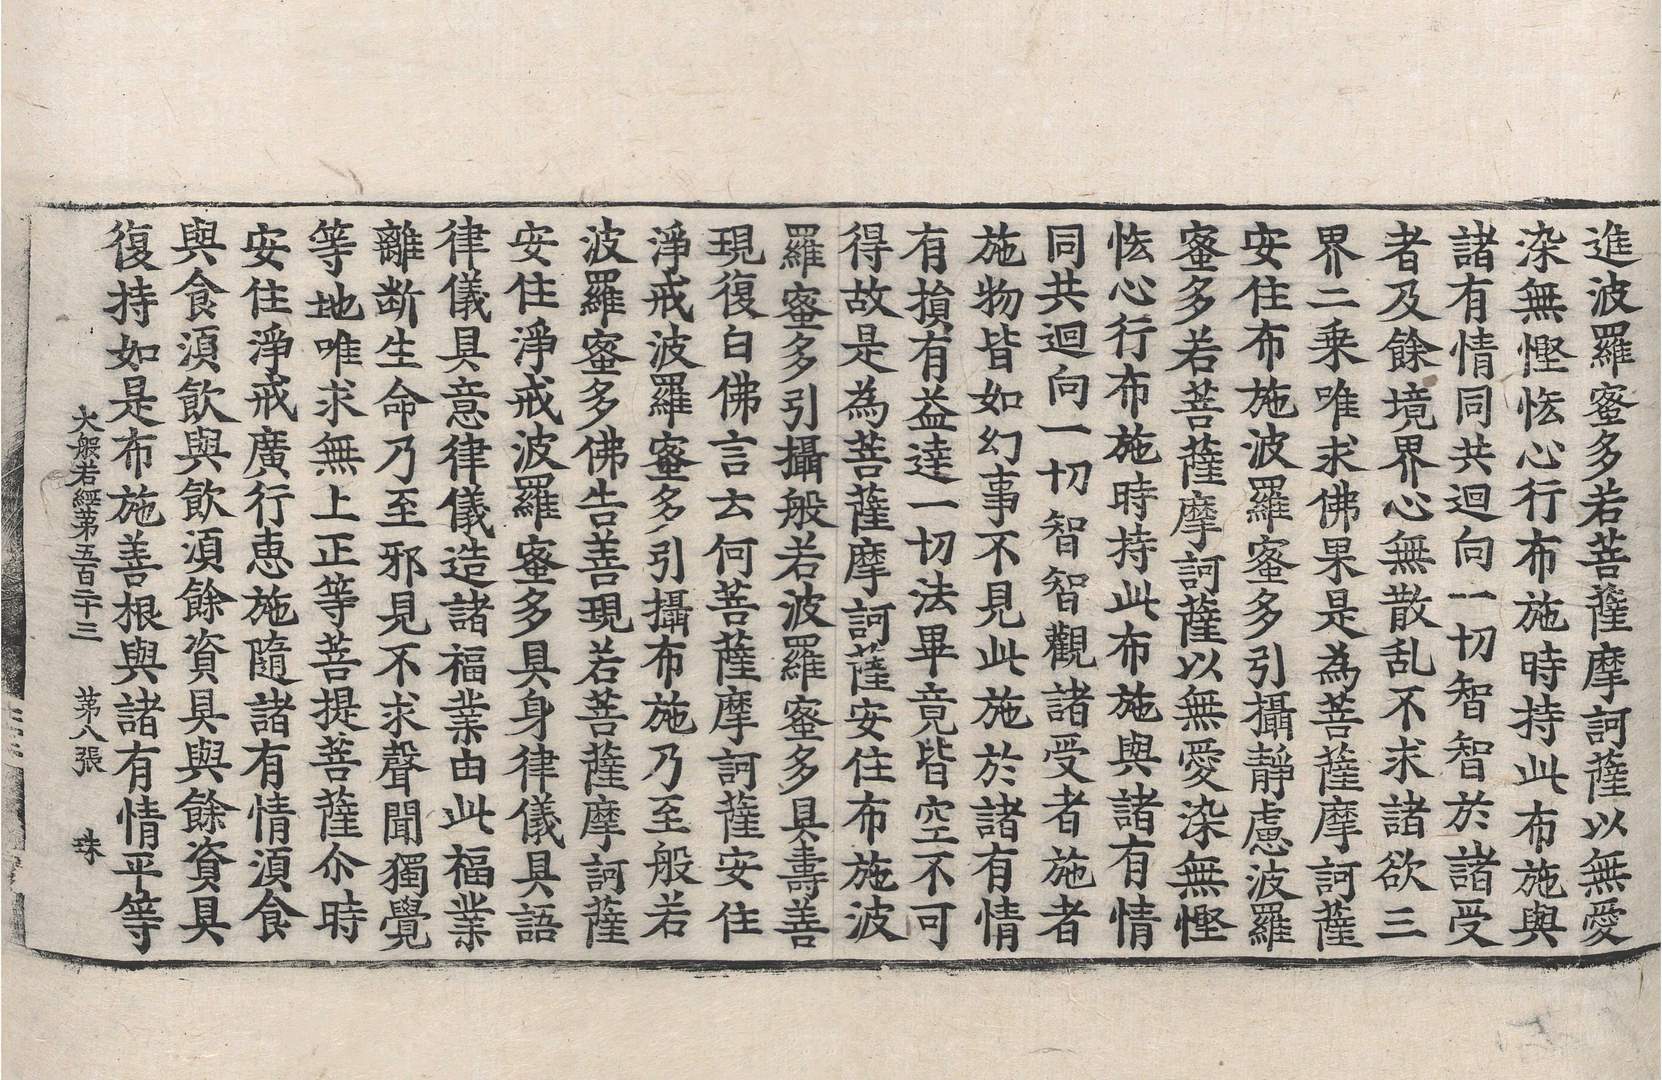 進波羅蜜多若菩薩摩訶薩以無愛
染無慳恡心行布施時持此布施與
諸有情同共迴向一切智智於諸受
者及餘境界心無散乱不求諸欲三
界二乗唯求佛果是為菩薩摩訶薩
安住布施波羅蜜多引攝靜慮波羅
蜜多若菩薩摩訶薩以無愛染無慳
恡心行布施時持此布施與諸有情
同共迴向一切智智觀諸受者施者
施物皆如幻事不見此施於諸有情
有損有益達一切法畢竟皆空不可
得故是為菩薩摩訶薩安住布施波
羅蜜多引攝般若波羅蜜多具壽善
現復白佛言云何菩薩摩訶薩安住
淨戒波羅蜜多引攝布施乃至般若
波羅蜜多佛告善現若菩薩摩訶薩
安住淨戒波羅蜜多具身律儀具語
律儀具意律儀造諸福業由此福業
離断生命乃至邪見不求聲聞獨覺
等地唯求無上正等菩提菩薩尒時
安住淨戒廣行恵施隨諸有情湏食
與食湏飲與飲湏餘資具與餘資具
復持如是布施善根與諸有情平等
大般若經苐五百二十三 苐八張 珠